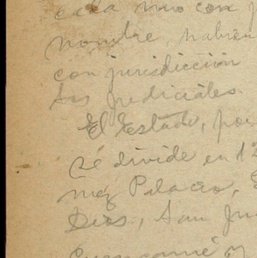 cada uno con
nombre, habien
con jurisdicción
los prediciales.
El Estado, por
Sé divide en 12
mez Palacio,
Dios, San Ju
Cuencamé y